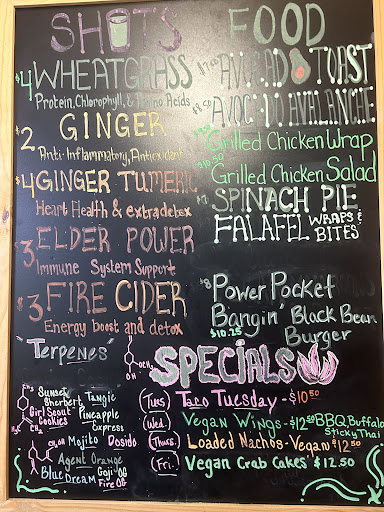 SHOTS
$4 WHEATGRASS
Protein, Chlorophyll, & Amino Acids
$2 GINGER
Anti-Inflammatory, Antioxidant
$4 GINGER TUMERIC
Heart Health & extra detox
$3 ELDER POWER
Immune System Support
$3 FIRE CIDER
Energy boost and detox
FOOD
AVOCADO TOAST
AVOCADO AVALANCHE
Grilled Chicken Wrap
$10.50 Grilled Chicken Salad
SPINACH PIE
FALAFEL WRAPS & BITES
$8 Power Pocket
Bangin' Black Bean
$10.25 Burger
"Terpenes"
OCH3
OH
CH3
Sunset Sherbert Tangie
Girl Scout Cookies Pineapple Express
CH2OH Mojito Dosido
Agent Orange
Blue Dream Goji OG
Fire OG
SPECIALS
(Tues.) Taco Tuesday - $10.50
(Wed.) Vegan Wings - $12.50 BBQ, Buffalo
Sticky Thai
(Thurs.) Loaded Nachos - Vegan $12.50
(Fri.) Vegan Crab Cakes $12.50